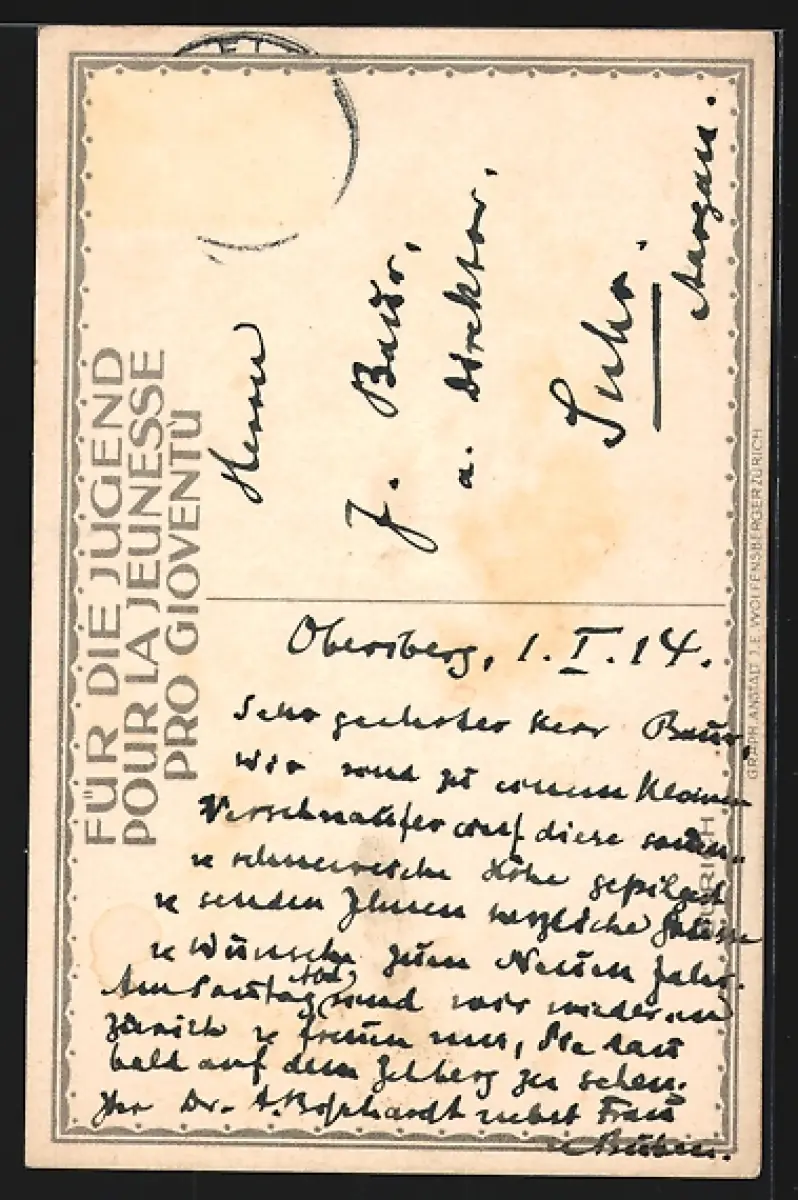 FÜR DIE JUGEND
POUR LA JEUNESSE
PRO GIOVENTÙ
Herrn
J. Baur,
a. Direktor,
Suhr.
Aargau.
Obersberg, 1. I. 14.
Sehr geehrter Herr Baur,
wir sind zu einem kleinen
Verschnaufer auf diese
u. Höhe gepilgert
u. senden Ihnen herzliche Grüsse
u. Wünsche zum Neuen Jahr.
Am Sonntag sind wir wieder in
Zürich u. freuen uns, Sie dann
bald auf dem Zelberg zu sehen.
Ihr Dr. A. Bosshardt nebst Frau
u. Buben.
GRAPH. ANSTALT J. E. WOLFENSBERGER ZÜRICH